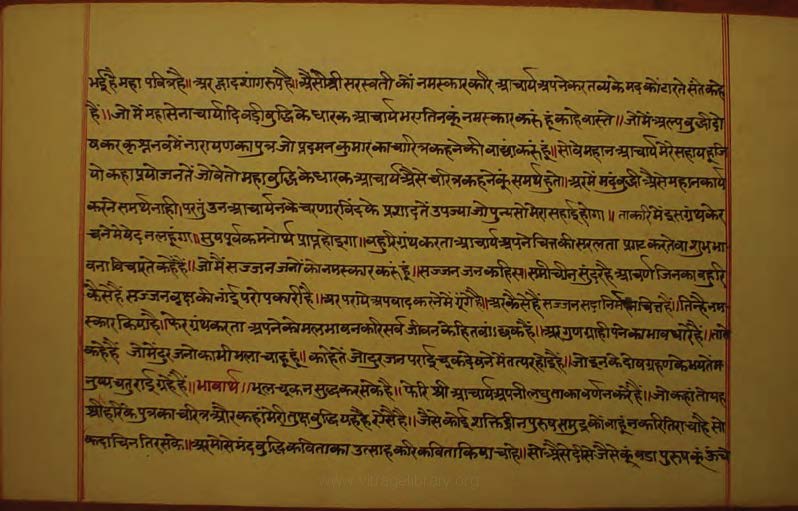 भई है महा पवित्र है॥ अर द्वादशांगरूप है॥ अैसी श्री सरस्वती कों नमस्कार करि आचार्य अपने करतव्य के मद कों टारते संते कहे
हैं॥ जो में महासेनाचार्यादि बड़ी बुद्धि के धारक आचार्य भए तिनकूं नमस्कार करूं हूं काहे वास्ते॥ जो में अल्प बुद्धी दो
ष कर कृश्न नवमें नारायण का पुत्र जो प्रदमन कुमार का चारित्र कहन की वांछा करूं हूं॥ सो वे महान आचार्य मेरे सहाय हूजि
यो कहा प्रयोजन तें जो वे तो महा बुद्धि के धारक आचार्य अैसे चरित्र कहने कूं समर्थ हुते॥ अर में मंद बुद्धी अैसे महान कार्य
करने समर्थ नाही॥ परंतु उन आचार्यन के चरणारविंद के प्रशाद तें उपज्या जो पुन्य सो मेरा सहाई होगा॥ ताकरि में इस ग्रंथ के र
चने में षेद न लहूंगा॥ सुष पूर्वक मनोर्थ प्राप्त होइगा॥ बहुरि ग्रंथ करता आचार्य अपने चित्त की सरलता प्रगट करते वा शुभ भा
वना विच प्रते कहे हैं॥ जो में सज्जन जनों को नमस्कार करूं हूं॥ सज्जन जन कहिए॥ समीचीन सुंदर है आचर्ण जिनका बहुरि
कैसे हैं सज्जन वृक्ष की नांई परोपकारी है॥ अर पराये अपवाद करने में गूंगे है॥ अर कैसे है सज्जन सदा निर्मल चित्त है॥ तिन्है नम
स्कार किया है॥ फेर ग्रंथ करता अपने कोमल भाव न करि सर्व जीवन के हित वांछक हैं॥ अर गुण ग्राही पने का भाव धारे हैं॥ ताते
कहे हैं जो में दुरजनो का भी भला चाहूं हूं॥ काहे तें जो दुरजन पराई चूक देषने में तत्पर होइ हैं॥ जो इनके दोष ग्रहण के भय तें म
नुष्य चतुराई ग्रहे हैं॥ भावार्थ॥ भूल चूक न सुद्ध कर सके है॥ फेरि श्री आचार्य अपनी लघुता का वर्नन करै हैं॥ जो कहां तो यह
श्री हरि के पुत्र का चरित्र और कहां मेरी तुछ बुद्धि यह है सो अैसे है॥ जैसे कोई शक्ति हीन पुरुष समुद्र कों बाहूंन करि तिरा चाहै सो
कदाचि न तिर सके॥ अर मो स मंद बुद्धि कविता का उत्साह करि कविता किया चाहे॥ सो अैसें दीसे जैसे कूबडा पुरुष कूं ऊंचे
www.vitragelibrary.org